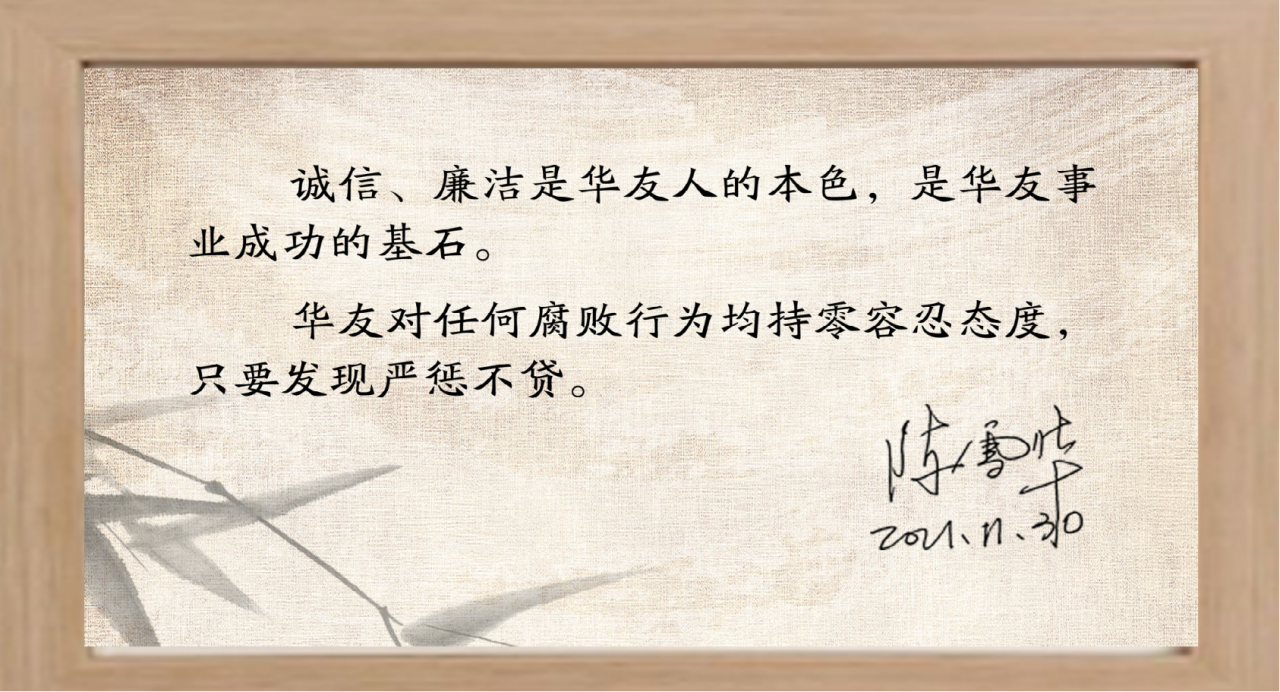 诚信、廉洁是华友人的本色，是华友事
业成功的基石。
华友对任何腐败行为均持零容忍态度，
只要发现严惩不贷。
陈雪华
2021.11.30